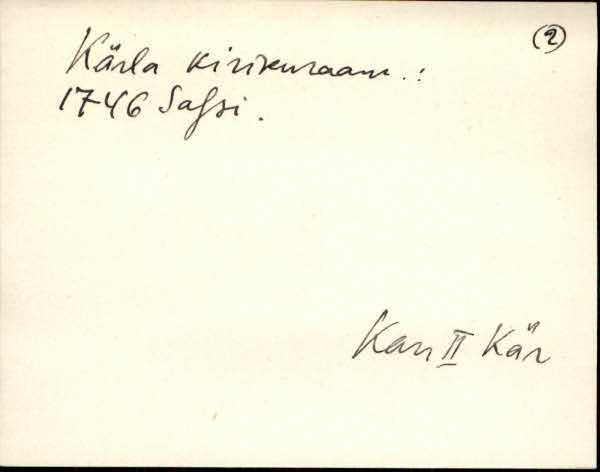 (2)
Kärla kirikuraam.:
1746 Sassi.
Kan II Kär